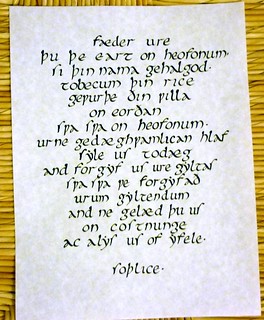 fæder ure
þu þe eart on heofonum.
si þin nama gehalgod.
tobecum þin rice
geƿurþe ðin ƿilla
on eorðan
sƿa sƿa on heofonum.
urne gedæghƿamlican hlaf
syle us todæg
and forgyf us ure gyltas
sƿa sƿa ƿe forgyfað
urum gyltendum
and ne gelæd þu us
on costnunge
ac alys us of yfele.
soþlice.